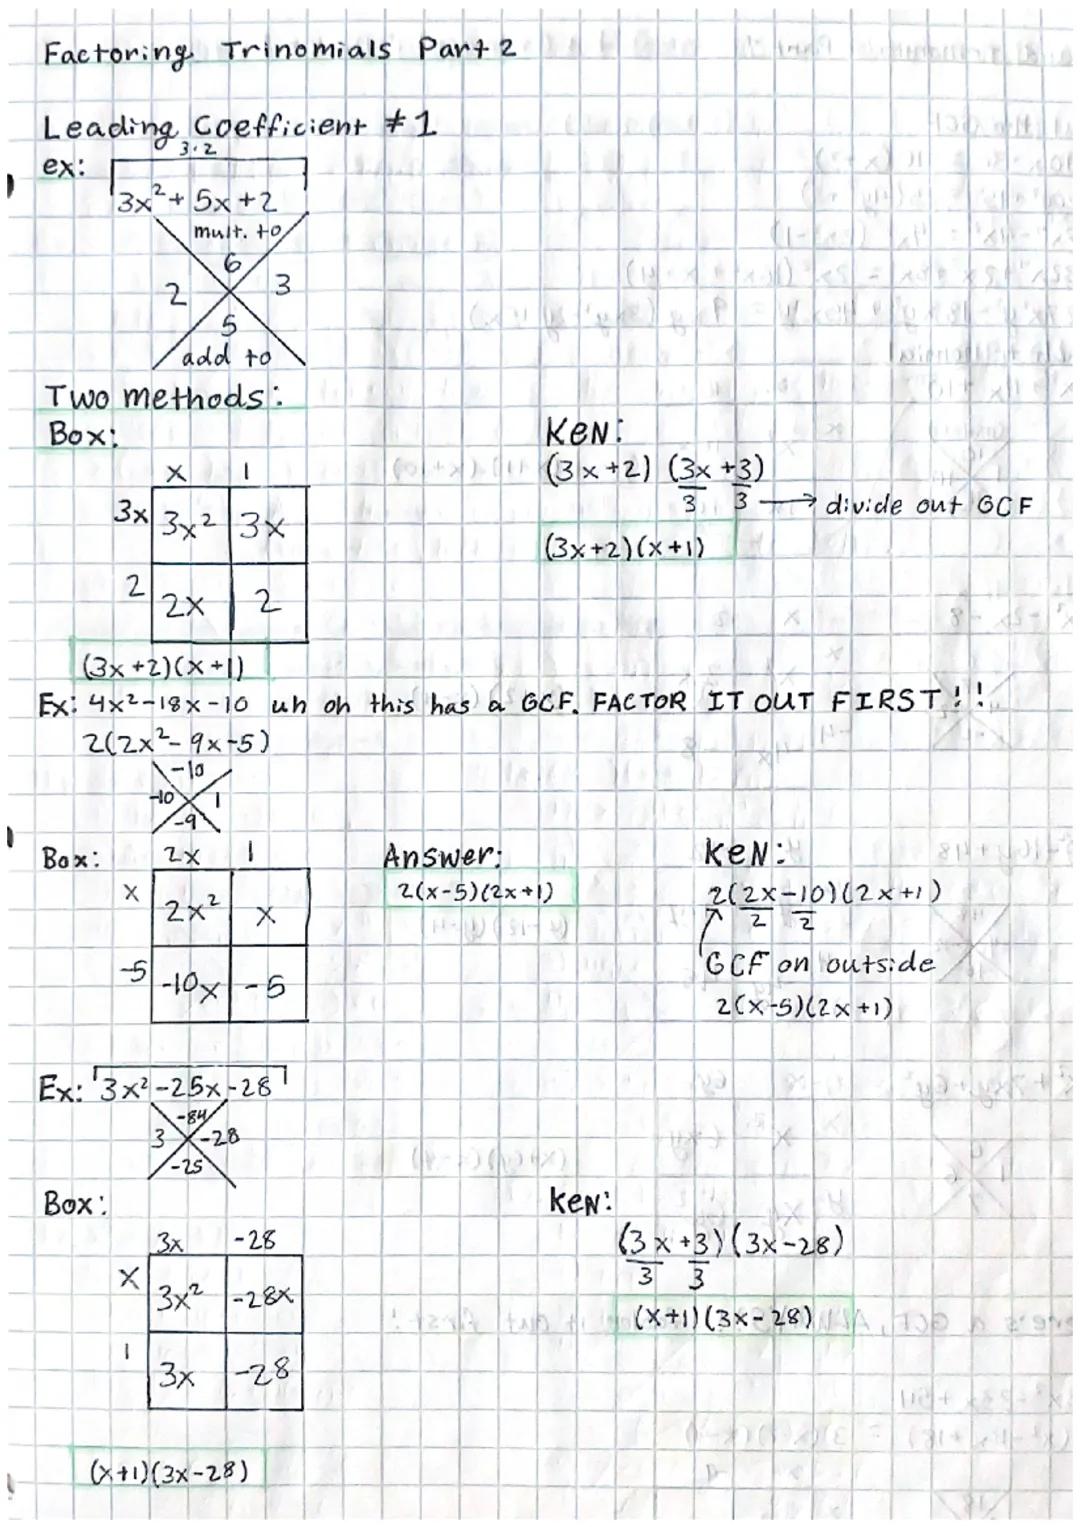 Factoring Trinomials Part 2
Leading Coefficient ≠ 1
3·2
ex:
3x²+ 5x +2
mult. to
6
2 3
5
add to
Two methods:
Box:
x 1
3x 3x² 3x
2 2x 2
(3x+2)(x+1)
KEN:
(3x+2) (3x +3)
3 3 → divide out GCF
(3x+2)(x+1)
Ex: 4x²-18x-10 uh oh this has a GCF. FACTOR IT OUT FIRST!!
2(2x²- 9x-5)
-10
-10 1
-9
Box: 2x 1
x 2x² x
-5 -10x -5
Answer:
2(x-5)(2x+1)
KEN:
2(2x-10)(2x+1)
2 2
GCF on outside
2(x-5)(2x+1)
Ex: 3x²-25x-28
-84
3 -28
-25
Box:
3x -28
x 3x² -28x
1 3x -28
(x+1)(3x-28)
KEN:
(3x+3)(3x-28)
3 3
(x+1)(3x-28)